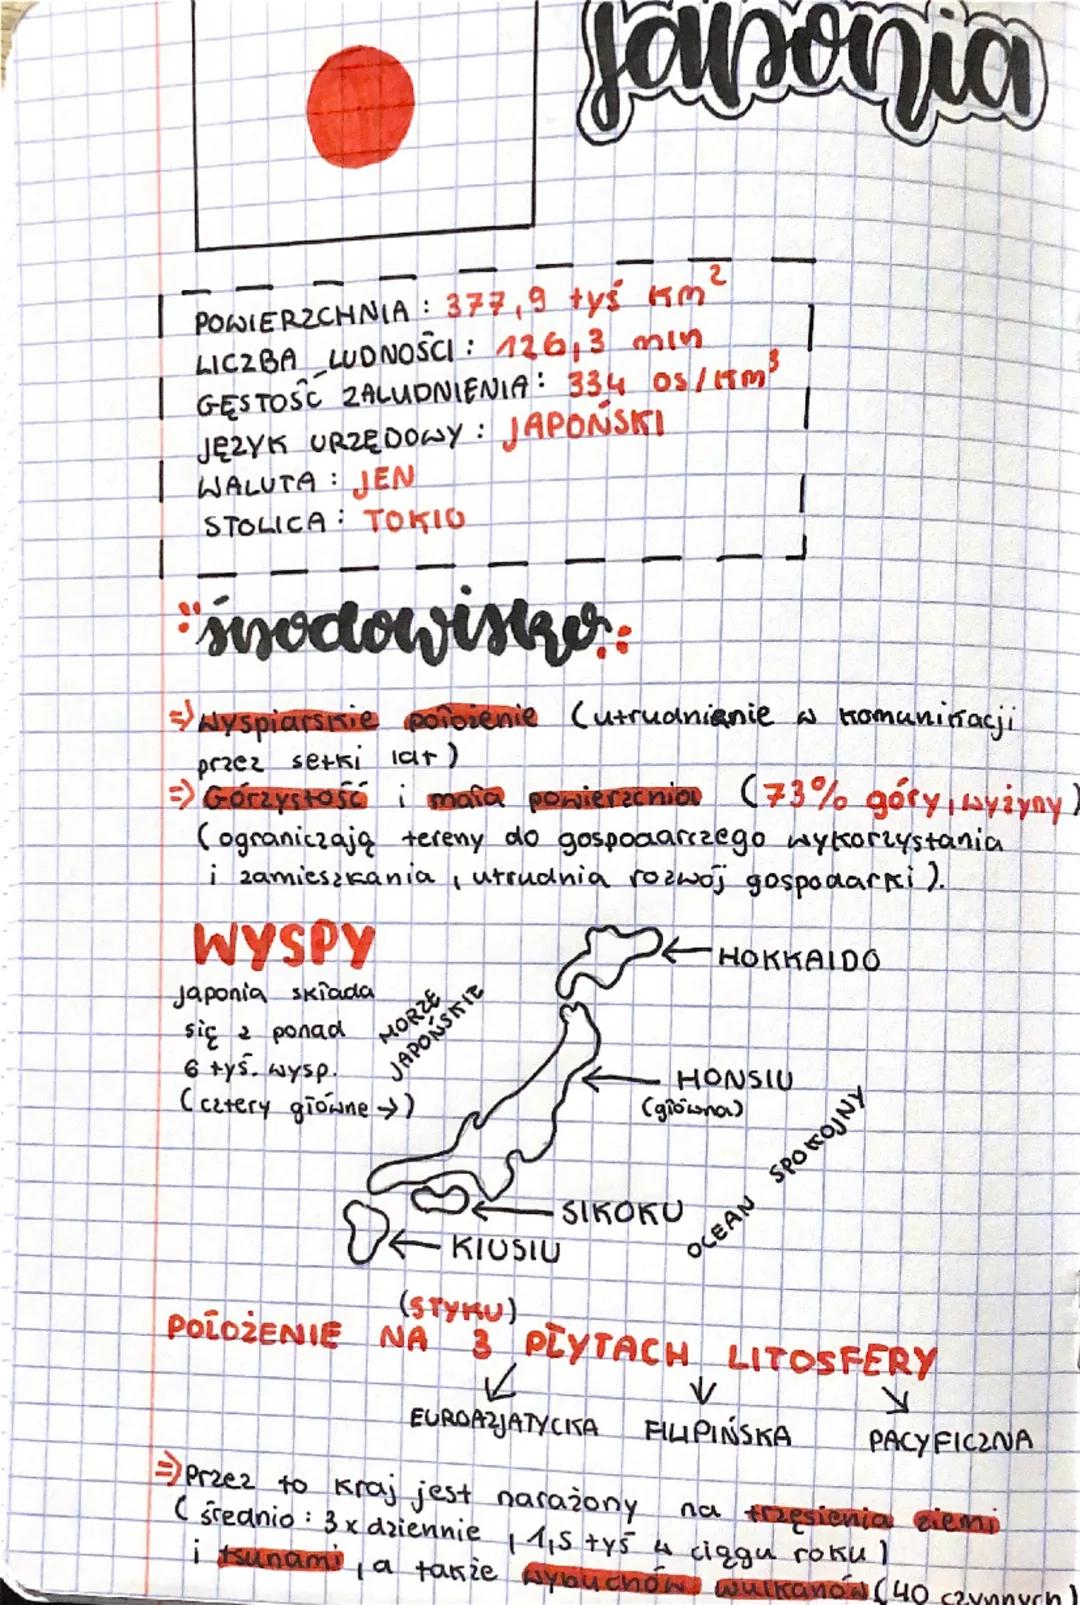 Japonia
POWIERZCHNIA : 377,9 tyś km²
LICZBA LUDNOŚCI : 126,3 mln
GĘSTOŚĆ ZALUDNIENIA : 334 os/km³
JĘZYK URZĘDOWY : JAPOŃSKI
WALUTA : JEN
STOLICA : TOKIO
środowisko
⇒ Wyspiarskie położenie (utrudnienie w komunikacji
przez setki lat)
⇒ Górzystość i mała powierzchnia (73% góry, wyżyny)
(ograniczają tereny do gospodarczego wykorzystania
i zamieszkania, utrudnia rozwój gospodarki).
WYSPY
Japonia składa
się z ponad
6 tyś. wysp.
(cztery główne →)
MORZE
JAPOŃSKIE
← HOKKAIDO
← HONSIU
(główna)
OCEAN SPOKOJNY
← SIKOKU
← KIUSIU
(STYKU)
POŁOŻENIE NA 3 PŁYTACH LITOSFERY
EUROAZJATYCKA FILIPIŃSKA PACYFICZNA
⇒ Przez to kraj jest narażony na trzęsienia ziemi
(średnio : 3x dziennie, 1,5 tyś w ciągu roku)
i tsunami, a także wybuchów wulkanów (40 czynnych)